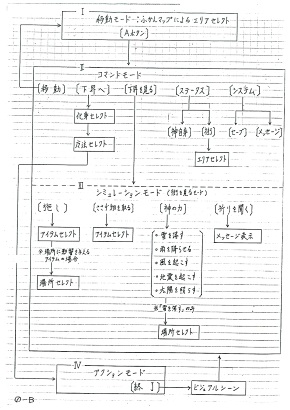 I
移動モード:ふかんマップによるエリアセレクト
[Aボタン]
II
コマンドモード
[移動] [下界へ] [下界を見る] [ステータス] [システム]
化身セレクト
方法セレクト
[神自身] [街] [セーブ] [メッセージ]
エリアセレクト
III
シミュレーションモード (街を見るモード)
[施し] [ささげ物を取る] [神の力] [祈りを聞く]
アイテムセレクト アイテムセレクト メッセージ表示
※場所に影響を与える
アイテムの場合
場所セレクト
○雷を落す
○雨を降らせる
○風を起こす
○地震を起こす
○太陽を照らす
※「雷を落す」のみ
場所セレクト
IV
アクションモード
[終 I]
ビジュアルシーン
0-B